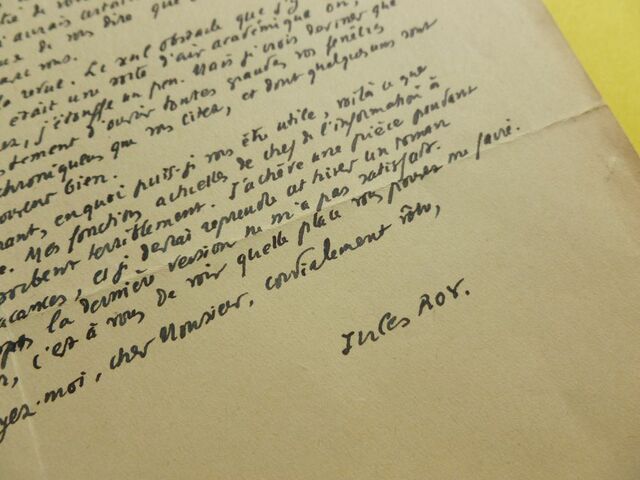 de vous dire que
avec vous.
la revue. Le seul obstacle que j'y
était une sorte d'air académique où,
j'étouffe un peu. Mais je crois deviner que
d'ouvrir toutes grandes vos fenêtres
chroniqueurs que vous citez, et dont quelques uns sont
bien.
en quoi puis-je vous être utile, voilà ce que
Mes fonctions actuelles de chef de l'information à
terriblement. J'achève une pièce pendant
et je devrai reprendre cet hiver un roman
la dernière version ne m'a pas satisfait.
c'est à vous de voir quelle place vous pouvez me faire.
moi, cher Monsieur, cordialement vôtre,
Jules Roy.